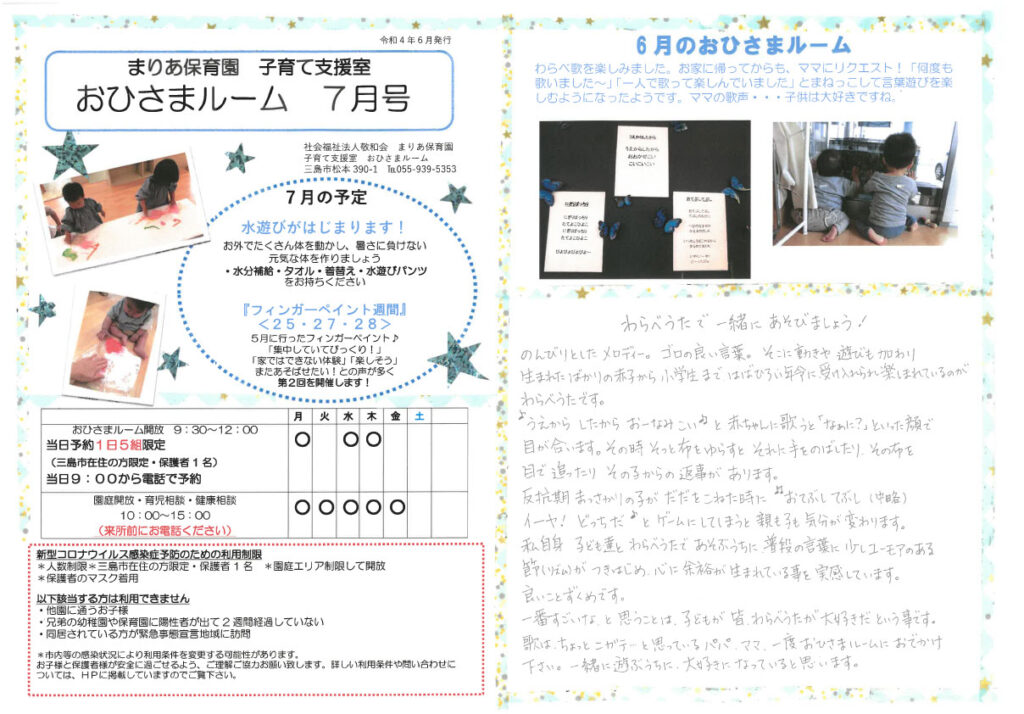 令和4年6月発行
まりあ保育園　子育て支援室
おひさまルーム　7月号
社会福祉法人敬和会　まりあ保育園
子育て支援室　おひさまルーム
三島市松本390-1　℡055-939-5353
7月の予定
水遊びがはじまります！
お外でたくさん体を動かし、暑さに負けない
元気な体を作りましょう
・水分補給・タオル・着替え・水遊びパンツ
をお持ちください
『フィンガーペイント週間』
＜25・27・28＞
5月に行ったフィンガーペイント♪
「集中していてびっくり！」
「家ではできない体験」「楽しそう」
またあそばせたい！との声が多く
第2回を開催します！
月 火 水 木 金 土
おひさまルーム開放　9：30～12：00
当日予約1日5組限定
（三島市在住の方限定・保護者1名）
当日9：00から電話で予約
〇 〇 〇
園庭開放・育児相談・健康相談
10：00～15：00
（来所前にお電話ください）
〇 〇 〇 〇 〇
新型コロナウイルス感染症予防のための利用制限
＊人数制限＊三島市在住の方限定・保護者1名　＊園庭エリア制限して開放
＊保護者のマスク着用
以下該当する方は利用できません
・他園に通うお子様
・兄弟の幼稚園や保育園に陽性者が出て2週間経過していない
・同居されている方が緊急事態宣言地域に訪問
＊市内等の感染状況により利用条件を変更する可能性があります。
お子様と保護者様が安全に過ごせるよう、ご理解ご協力お願い致します。詳しい利用条件や問い合わせに
ついては、HPに掲載していますのでご覧下さい。
6月のおひさまルーム
わらべ歌を楽しみました。お家に帰ってからも、ママにリクエスト！「何度も
歌いました～」「一人で歌って楽しんでいました」とまねっこして言葉遊びを楽
しむようになったようです。ママの歌声・・・子供は大好きですね。
うえからしたから
うえからしたから
おおかぜこい
こいこいこい
わらべうたで一緒にあそびましょう！
のんびりとしたメロディー。ゴロの良い言葉。そこに動きや遊びも加わり
生まれたばかりの赤子から小学生まではばひろい年令に受け入れられ楽しまれているのが
わらべうたです。
♪うえから したから おーなみこい♪と赤ちゃんに歌うと「なぁに？」といった顔で
目が合います。その時そっと布をゆらすと それに手をのばしたり、その布を
目で追ったり その子からの返事があります。
反抗期まっさかりの子がだだをこねた時に♫おてぶしてぶし（中略）
イーヤ！どっちだ♪とゲームにしてしまうと親も子も気分が変わります。
私自身 子ども達とわらべうたであそぶうちに 普段の言葉に少しユーモアのある
節（リズム）がつきはじめ、心に余裕が生まれている事を実感しています。
良いことずくめです。
一番すごいな、と思うことは、子どもが皆、わらべうたが大好きだという事です。
歌は、ちょっとニガテーと思っているパパ、ママ、一度おひさまルームにおでかけ
下さい。一緒に遊ぶうちに、大好きになっていると思います。